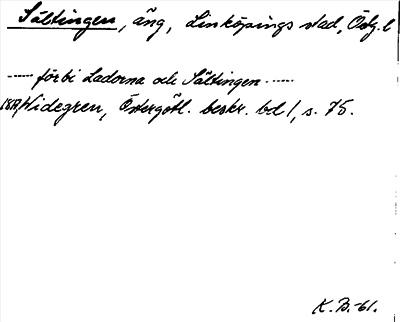 Sältingen, äng, Linköpings stad, Östg. l
----- förbi Ladorna och Sältingen -----
1817, Widegren, Östergötl. beskr. bd 1, s. 75.
K. B. -61.